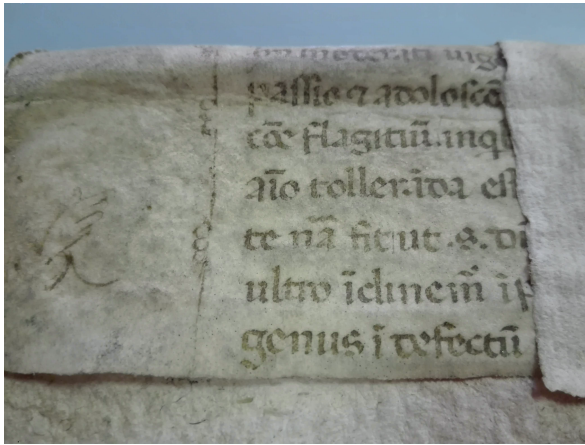 passio ⁊ adolescē
cōe flagitiū. inq
aīo tolleranda est
te nā fit ut . s. di
ultro īclinem̄ ip
genus ī defectū